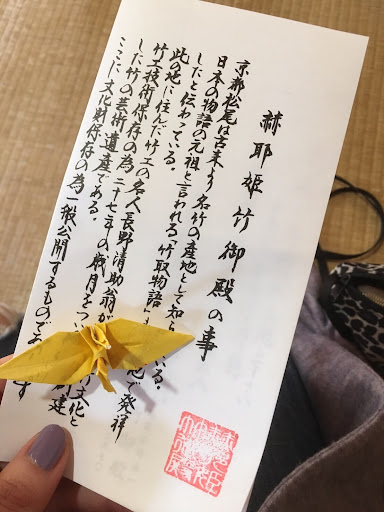 赫耶姫竹御殿の事
京都松尾は古来より名竹の産地として知ら いる。
日本の物語の元祖と言われる「竹取物語」 地で発祥
したと伝わっている。
此の地に住んだ竹工の名人長野清助翁が 文化と
竹工技術保存の為二十七年の歳月をつい 建
した竹の芸術遺産である。
ここに文化財保存の為一般公開するものであ す